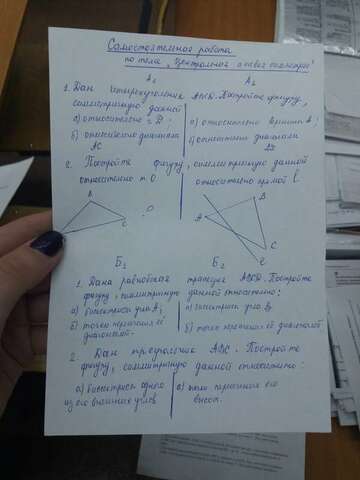 Самостоятельная работа
по теме „Центральная и осевая симметрия"
А₁ А₂
1. Дан четырехугольник ABCD. Постройте фигуру,
симметричную данной
а) относительно т. D. а) относительно вершины A;
б) относительно диагонали б) относительно диагонали
AC BD
2. Постройте фигуру, симметричную данной
относительно т. O относительно прямой l.
B B
A
C O
C
l
Б₁ Б₂
1. Дана равнобокая трапеция ABCD. Постройте
фигуру, симметричную данной относительно:
а) биссектрисы угла A; а) биссектрисы угла B;
б) точки пересечения её б) точки пересечения её диагоналей
диагоналей.
2. Дан треугольник ABC. Постройте
фигуру, симметричную данной относительно:
а) биссектрисы одного а) точки пересечения его
из его внешних углов высот.